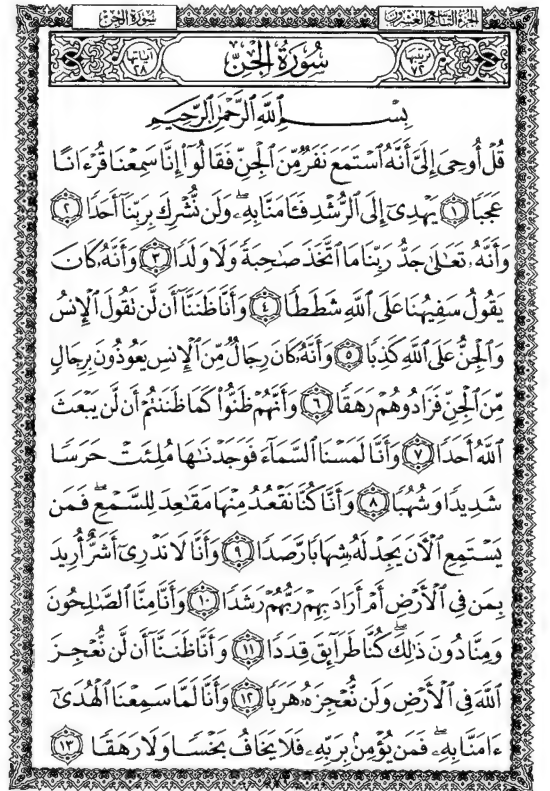 الجزء التاسع والعشرون
سورة الجن
ترتيبها ٧٢
سُورَةُ الجِنّ
آياتها ٢٨
بِسْمِ ٱللَّهِ ٱلرَّحْمَٰنِ ٱلرَّحِيمِ
قُلْ أُوحِىَ إِلَىَّ أَنَّهُ ٱسْتَمَعَ نَفَرٌ مِّنَ ٱلْجِنِّ فَقَالُوٓا۟ إِنَّا سَمِعْنَا قُرْءَانًا
عَجَبًا ١ يَهْدِىٓ إِلَى ٱلرُّشْدِ فَـَٔامَنَّا بِهِۦ ۖ وَلَن نُّشْرِكَ بِرَبِّنَآ أَحَدًا ٢
وَأَنَّهُۥ تَعَٰلَىٰ جَدُّ رَبِّنَا مَا ٱتَّخَذَ صَٰحِبَةً وَلَا وَلَدًا ٣ وَأَنَّهُۥ كَانَ
يَقُولُ سَفِيهُنَا عَلَى ٱللَّهِ شَطَطًا ٤ وَأَنَّا ظَنَنَّآ أَن لَّن تَقُولَ ٱلْإِنسُ
وَٱلْجِنُّ عَلَى ٱللَّهِ كَذِبًا ٥ وَأَنَّهُۥ كَانَ رِجَالٌ مِّنَ ٱلْإِنسِ يَعُوذُونَ بِرِجَالٍ
مِّنَ ٱلْجِنِّ فَزَادُوهُمْ رَهَقًا ٦ وَأَنَّهُمْ ظَنُّوا۟ كَمَا ظَنَنتُمْ أَن لَّن يَبْعَثَ
ٱللَّهُ أَحَدًا ٧ وَأَنَّا لَمَسْنَا ٱلسَّمَآءَ فَوَجَدْنَٰهَا مُلِئَتْ حَرَسًا
شَدِيدًا وَشُهُبًا ٨ وَأَنَّا كُنَّا نَقْعُدُ مِنْهَا مَقَٰعِدَ لِلسَّمْعِ ۖ فَمَن
يَسْتَمِعِ ٱلْءَانَ يَجِدْ لَهُۥ شِهَابًا رَّصَدًا ٩ وَأَنَّا لَا نَدْرِىٓ أَشَرٌّ أُرِيدَ
بِمَن فِى ٱلْأَرْضِ أَمْ أَرَادَ بِهِمْ رَبُّهُمْ رَشَدًا ١٠ وَأَنَّا مِنَّا ٱلصَّٰلِحُونَ
وَمِنَّا دُونَ ذَٰلِكَ ۖ كُنَّا طَرَآئِقَ قِدَدًا ١١ وَأَنَّا ظَنَنَّآ أَن لَّن نُّعْجِزَ
ٱللَّهَ فِى ٱلْأَرْضِ وَلَن نُّعْجِزَهُۥ هَرَبًا ١٢ وَأَنَّا لَمَّا سَمِعْنَا ٱلْهُدَىٰٓ
ءَامَنَّا بِهِۦ ۖ فَمَن يُؤْمِنۢ بِرَبِّهِۦ فَلَا يَخَافُ بَخْسًا وَلَا رَهَقًا ١٣